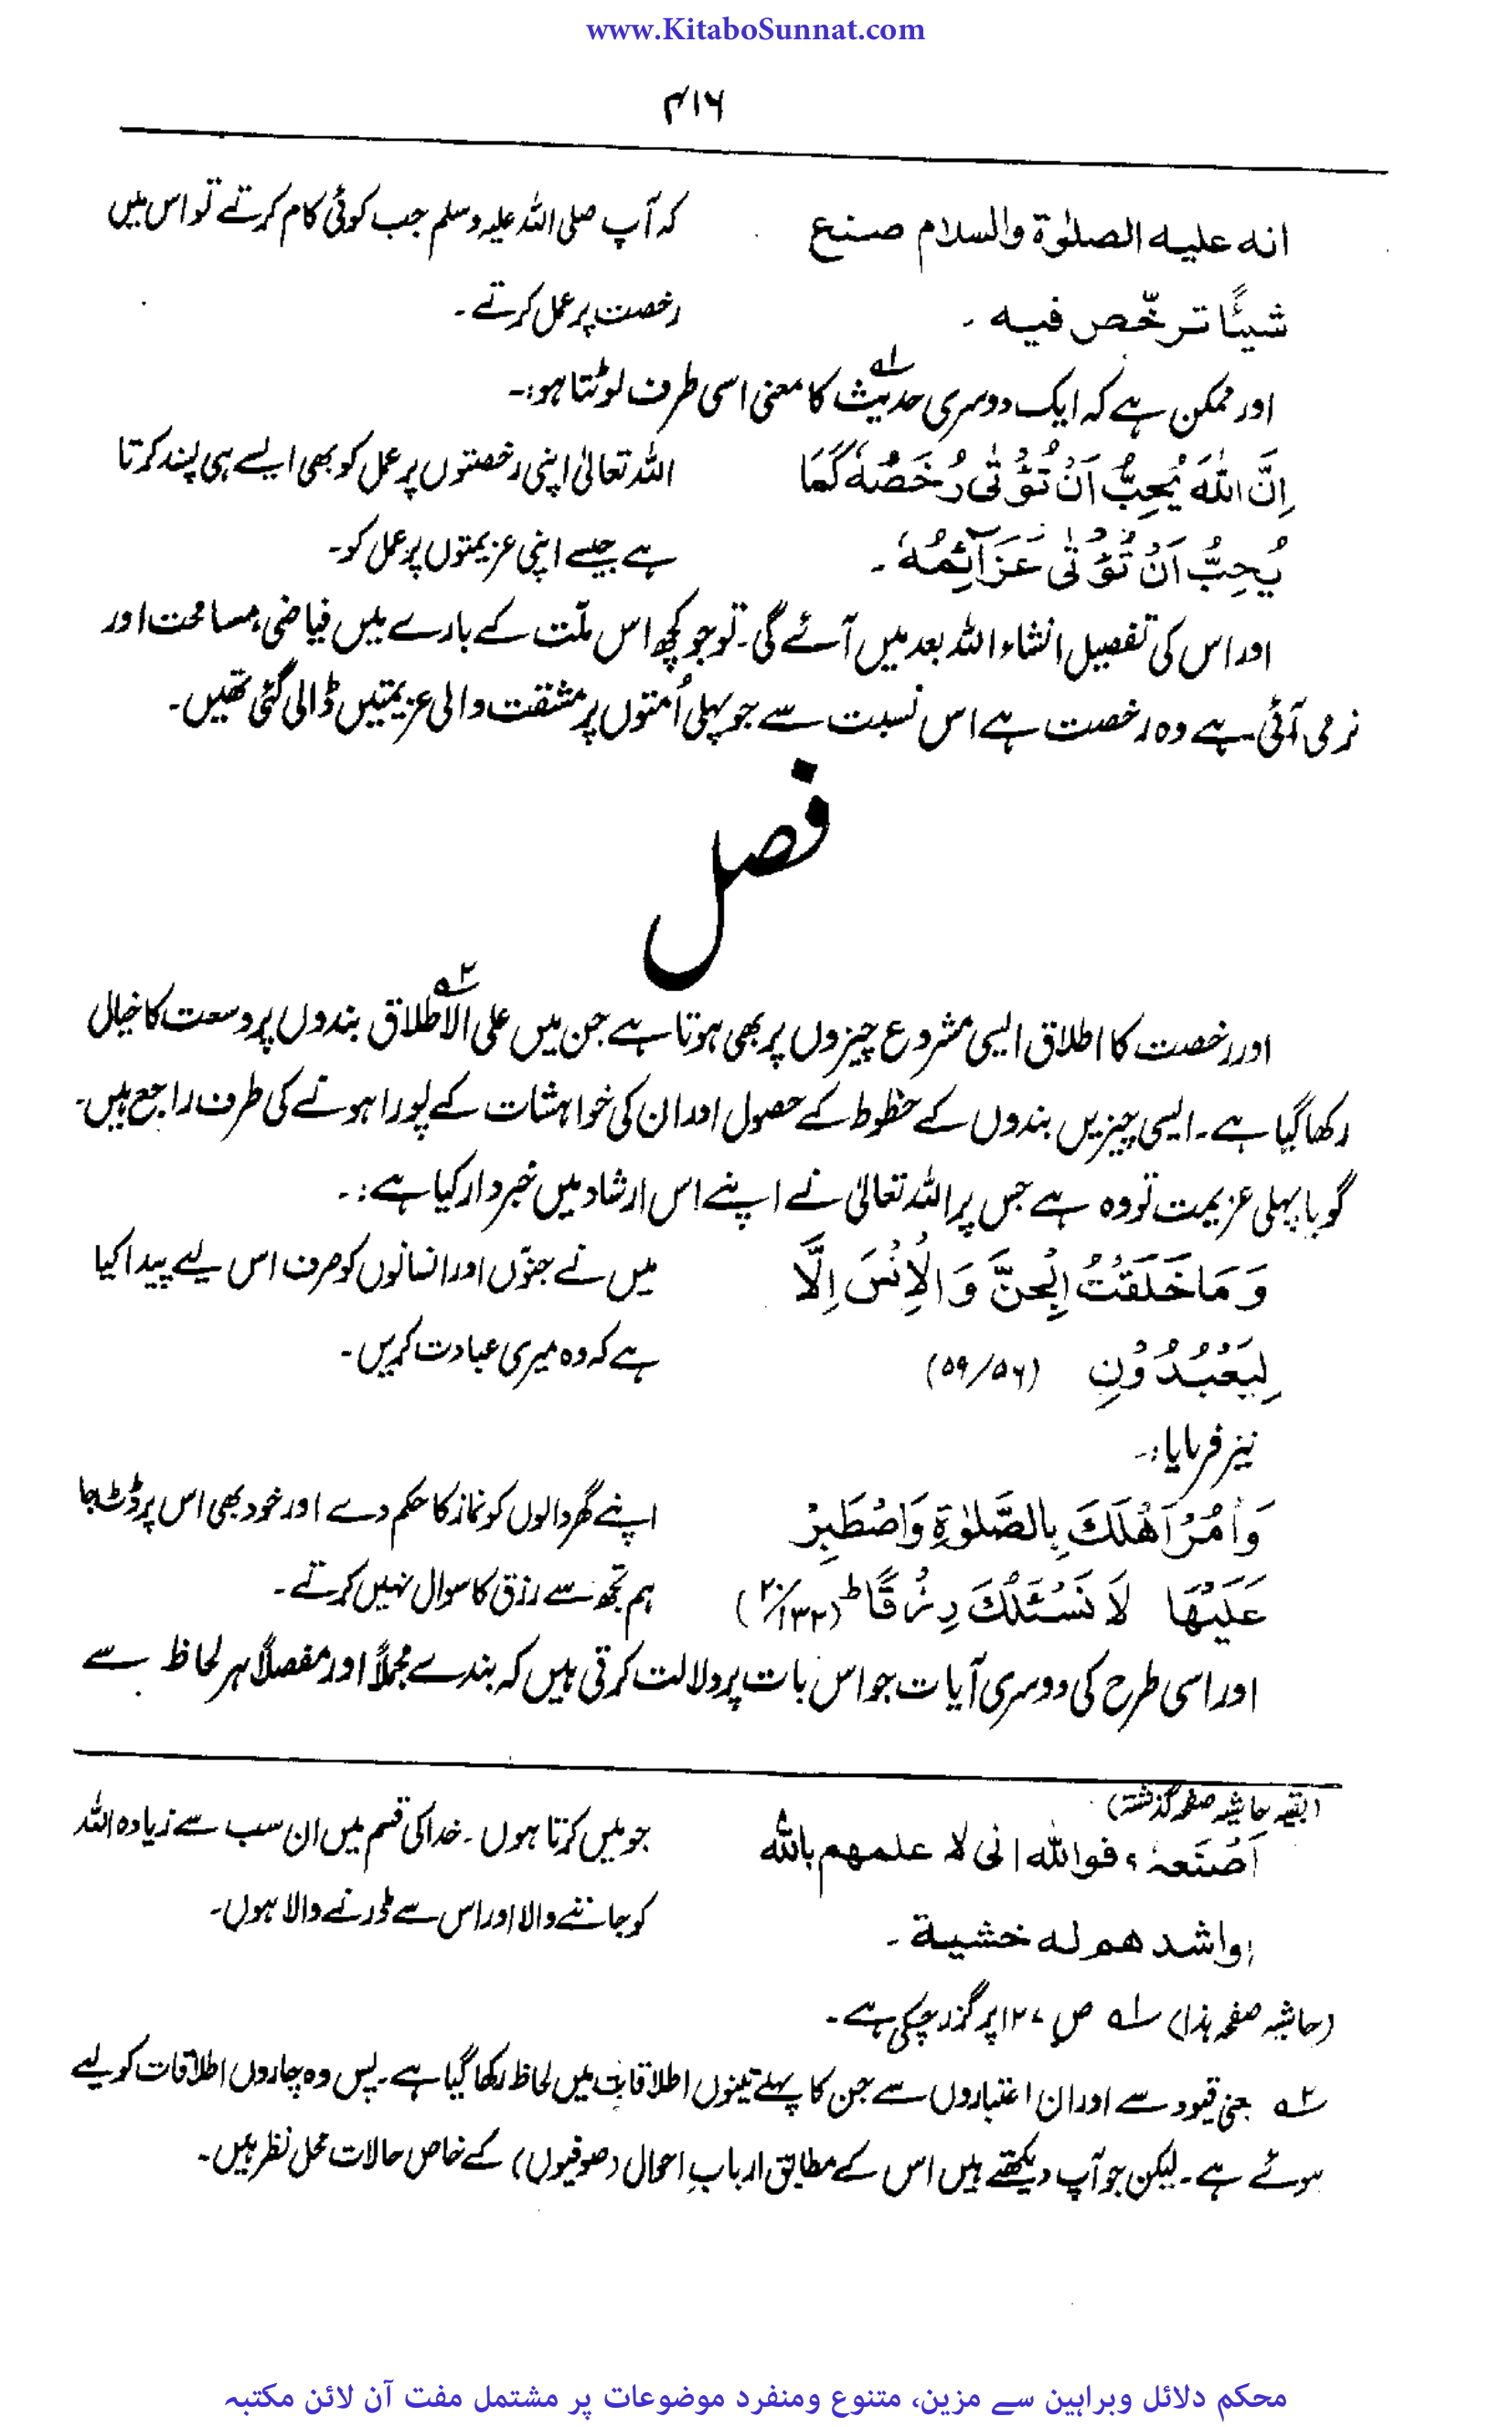 www.KitaboSunnat.com
۴۱۶
انه عليه الصلوٰة والسلام صنع
شيئًا ترخّص فيه ۔
کہ آپ صلی اللہ علیہ وسلم جب کوئی کام کرتے تو اس میں
رخصت پر عمل کرتے ۔
اور ممکن ہے کہ ایک دوسری حدیث۱؎ کا معنی اسی طرف لوٹتا ہو:۔
اِنَّ اللّٰهَ يُحِبُّ اَنْ تُؤْتٰى رُخَصُهٗ كَمَا
يُحِبُّ اَنْ تُؤْتٰى عَزَآئِمُهٗ ۔
اللہ تعالیٰ اپنی رخصتوں پر عمل کو بھی ایسے ہی پسند کرتا
ہے جیسے اپنی عزیمتوں پر عمل کو۔
اور اس کی تفصیل انشاء اللہ بعد میں آئے گی۔ تو جو کچھ اس ملّت کے بارے میں فیاضی، مسامحت اور
نرمی آئی ہے وہ رخصت ہے اس نسبت سے جو پہلی اُمتوں پر مشقت والی عزیمتیں ڈالی گئی تھیں۔
فصل
اور رخصت کا اطلاق ایسی مشروع چیزوں پر بھی ہوتا ہے جن میں علی الاطلاق۲؎ بندوں پر وسعت کا خیال
رکھا گیا ہے۔ ایسی چیزیں بندوں کے حظوظ کے حصول اور ان کی خواہشات کے پورا ہونے کی طرف راجع ہیں۔
گویا پہلی عزیمت تو وہ ہے جس پر اللہ تعالیٰ نے اپنے اس ارشاد میں خبردار کیا ہے:۔
وَمَا خَلَقْتُ الْجِنَّ وَالْاِنْسَ اِلَّا
لِيَعْبُدُوْنِ (۵۹/۵۶)
میں نے جنّوں اور انسانوں کو صرف اس لیے پیدا کیا
ہے کہ وہ میری عبادت کریں۔
نیز فرمایا:۔
وَاْمُرْ اَهْلَكَ بِالصَّلٰوةِ وَاصْطَبِرْ
عَلَيْهَا لَا نَسْئَلُكَ رِزْقًا ط (۲۰/۱۳۲)
اپنے گھر والوں کو نماز کا حکم دے اور خود بھی اس پر ڈٹ جا
ہم تجھ سے رزق کا سوال نہیں کرتے ۔
اور اسی طرح کی دوسری آیات جو اس بات پر دلالت کرتی ہیں کہ بندے مجملاً اور مفصلاً ہر لحاظ سے
(بقیہ حاشیہ صفحہ گذشتہ)
اَصْنَعهٗ، فوالله انى لا علمهم بالله
واشد هم له خشية ۔
جو میں کرتا ہوں۔ خدا کی قسم میں ان سب سے زیادہ اللہ
کو جاننے والا اور اس سے ڈرنے والا ہوں۔
(حاشیہ صفحہ ہذا) ۱؎ ص ۱۲۷ پر گزر چکی ہے۔
۲؎ جن قیود سے اور ان اعتباروں سے جن کا پہلے تینوں اطلاقات میں لحاظ رکھا گیا ہے۔ پس وہ چاروں اطلاقات کو لیے
ہوئے ہے۔ لیکن جو آپ دیکھتے ہیں اس کے مطابق اربابِ احوال (صوفیوں) کے خاص حالات محل نظر ہیں۔
محکم دلائل وبراہین سے مزین، متنوع ومنفرد موضوعات پر مشتمل مفت آن لائن مکتبہ